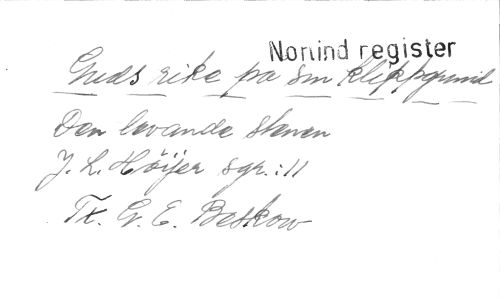 Norrind register
Guds rike på sin klippgrund
Den levande stenen
J. L. Höijer sgr. : 11
Tx. G. E. Beskow